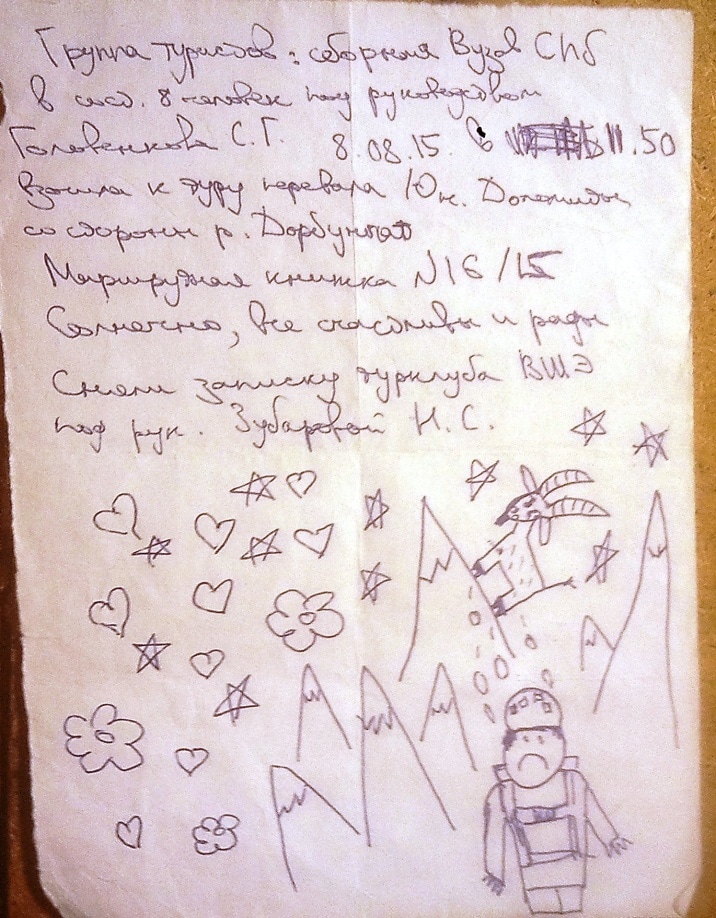 Группа туристов: сборная Вузов СПб
в сост. 8 человек под руководством
Головенкова С.Г. 8.08.15. в 11.50
взошла к туру перевала Юж. Доломиты
со стороны р. Дорбункат
Маршрутная книжка N16/15
Солнечно, все счастливы и рады
Сняли записку турклуба ВШЭ
под рук. Зубаровой Н.С.